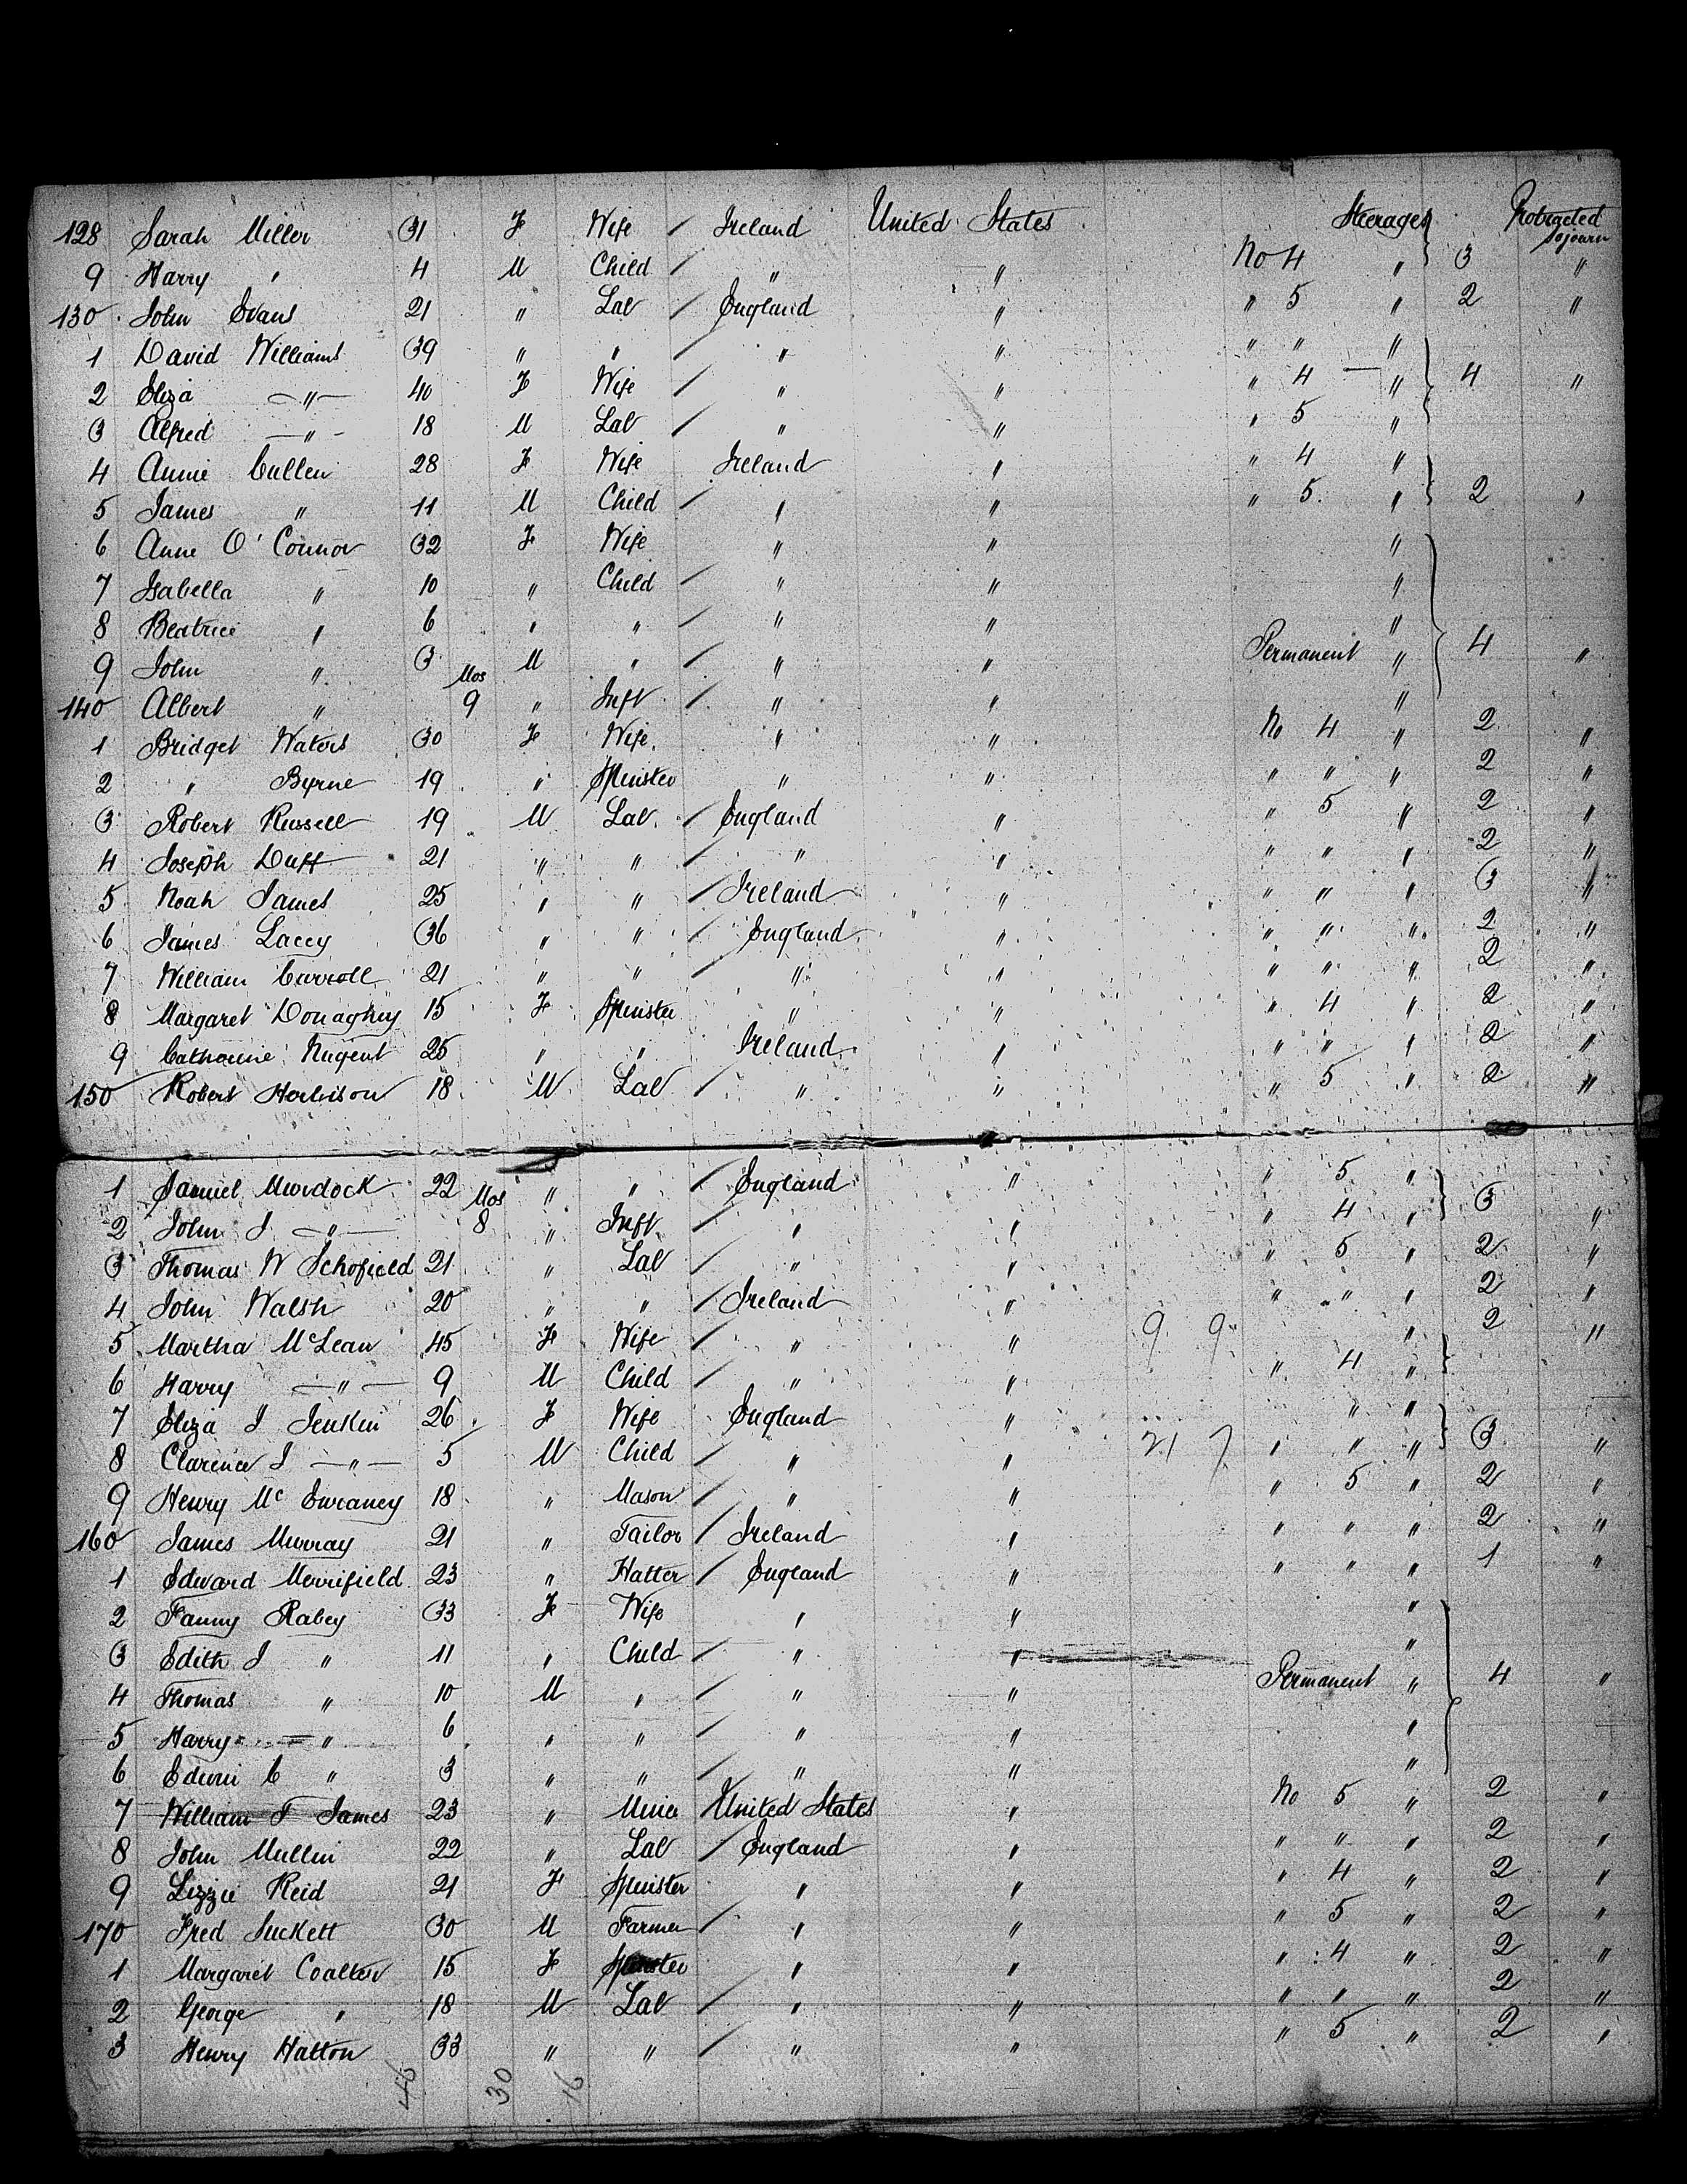 128 Sarah Miller 31 F Wife / Ireland United States Steerage Protracted sojourn
9 Harry " 4 M Child / " " No 4 " 3 "
130 John Evans 21 " Lab / England " " 5 " 2 "
1 David Williams 39 " " / " " " " "
2 Eliza —"— 40 F Wife / " " " 4 — " 4 "
3 Alfred —"— 18 M Lab / " " " 5 "
4 Annie Cullen 28 F Wife Ireland " " 4 "
5 James " 11 M Child / " " " 5 " 2 "
6 Anne O'Connor 32 F Wife " " "
7 Isabella " 10 " Child / " " "
8 Beatrice " 6 " " / " " "
9 John " 3 M " / " " Permanent " 4 "
140 Albert " Mos 9 " Inft / " " "
1 Bridget Waters 30 F Wife " " No 4 " 2 "
2 " Byrne 19 " Spinster " " " " " 2 "
3 Robert Russell 19 M Lab / England " " 5 " 2 "
4 Joseph Duff 21 " " / " " " " " 2 "
5 Noah James 25 " " / Ireland " " " " 3 "
6 James Lacey 36 " " / England " " " " 2 "
7 William Carroll 21 " " / " " " " " 2 "
8 Margaret Donaghey 15 F Spinster " " " 4 " 2 "
9 Catherine Nugent 25 " " Ireland " " " " 2 "
150 Robert Harbison 18 M Lab / " " " 5 " 2 "
1 Samuel Murdock 22 " " / England " " 5 "
2 John J —"— Mos 8 " Inft / " " " 4 " 3 "
3 Thomas W Schofield 21 " Lab / " " " 5 " 2 "
4 John Walsh 20 " " / Ireland " " " " 2 "
5 Martha McLean 45 F Wife / " " 9 9 " 2 "
6 Harry —"— 9 M Child / " " " 4 "
7 Eliza J Jenkin 26 F Wife England " " "
8 Clarence J —"— 5 M Child / " " 21 7 " " " 3 "
9 Henry Mc 18 " Mason / " " " 5 " 2 "
160 James Murray 21 " Tailor / Ireland " " " " 2 "
1 Edward Merrifield 23 " Hatter / England " " " " 1 "
2 Fanny Rabey 33 F Wife " " "
3 Edith J " 11 " Child / " " "
4 Thomas " 10 M " / " " Permanent " 4 "
5 Harry — " 6 " " / " " "
6 Edwin C " 3 " " / " " "
7 William T James 23 " Miner / United States " No 5 " 2 "
8 John Mullin 22 " Lab / England " " " " 2 "
9 Lizzie Reid 21 F Spinster " " " 4 " 2 "
170 Fred Suckett 30 M Farmer / " " " 5 " 2 "
1 Margaret Coalter 15 F Spinster " " " 4 " 2 "
2 George " 18 M Lab / " " " " " 2 "
3 Henry Hatton 33 " " / " " " 5 " 2 "
46 30 16